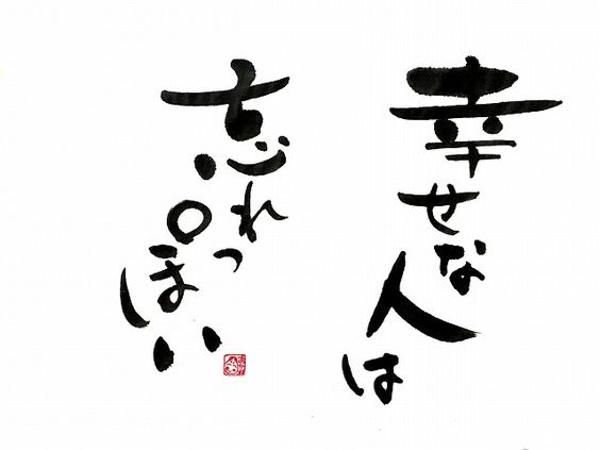 幸せな人は
忘れっぽい